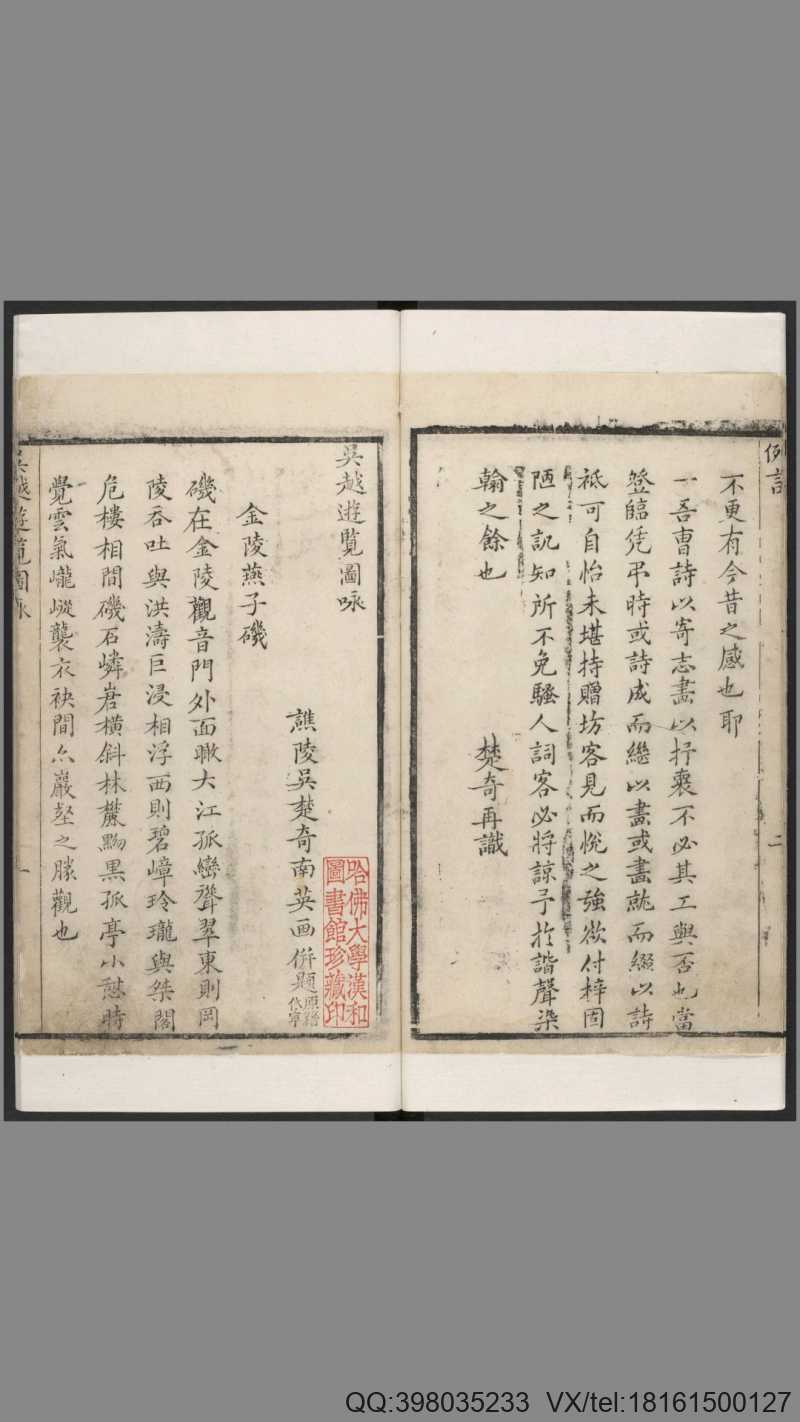 例言
二
不更有今昔之感也耶
一吾曹詩以寄志畵以抒裹不必其工與否也當
登臨凭弔時或詩成而繼以畵或畵就而綴以詩
祗可自怡未堪持贈坊客見而悅之强欲付梓固
陋之訊知所不免騷人詞客必將諒予於諧聲染
翰之餘也
楚奇再識
吳越遊覽圖咏
譙陵吳楚奇南英画併題原籍休寧
哈佛大學漢和
圖書館珍藏印
金陵燕子磯
磯在金陵觀音門外面瞰大江孤巒聳翠東則岡
陵吞吐與洪濤巨浸相浮西則碧嶂玲瓏與桀閣
危樓相間磯石嶙峋橫斜林麓黝黑孤亭小憇時
覺雲氣巄嵷襲衣袂間亦巖壑之勝觀也
吳越遊覽圖咏
一
QQ:398035233 VX/tel:18161500127